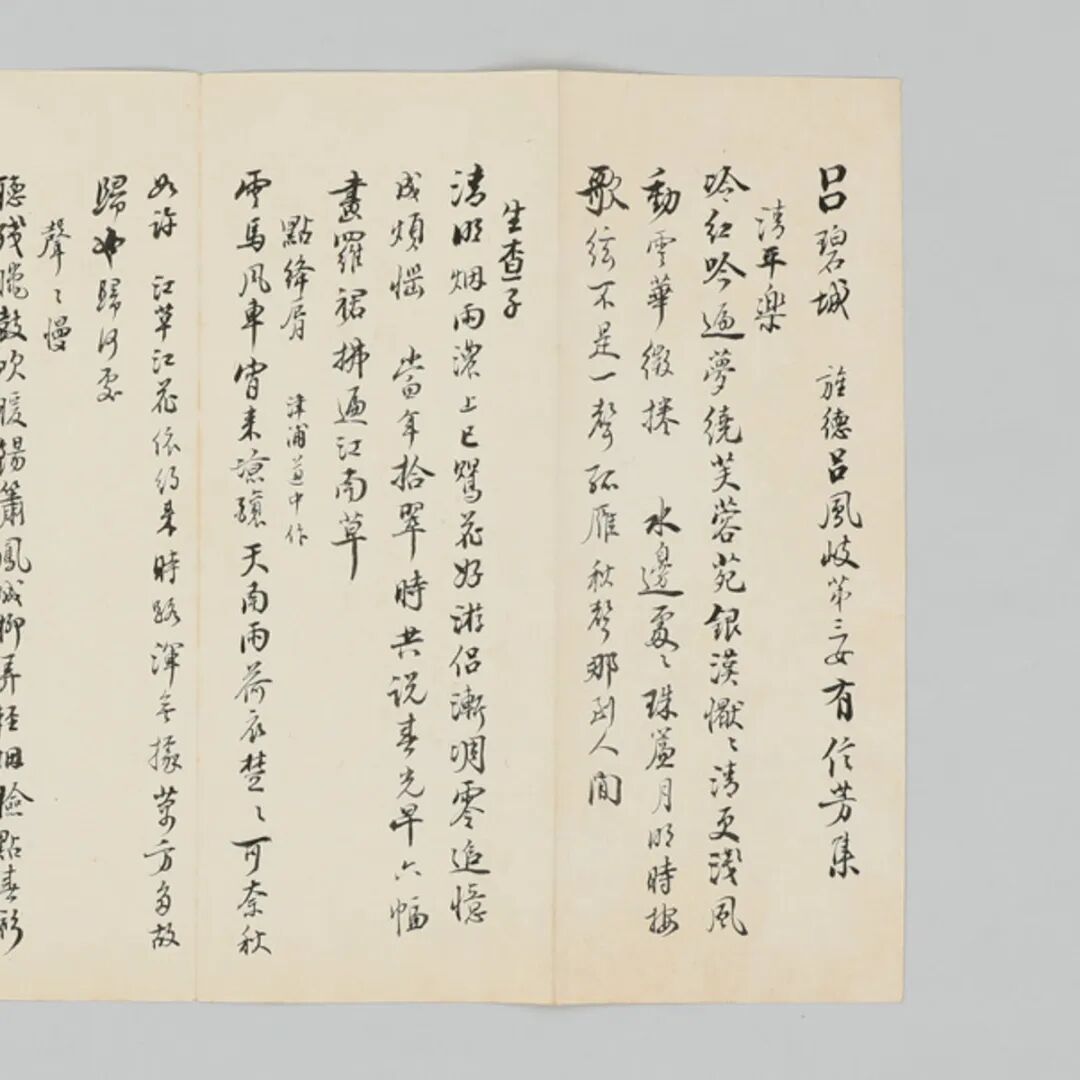 呂碧城　旌德呂鳳岐第三女有信芳集
清平樂
冷紅吟遍夢繞芙蓉苑銀漢懨〻清更淺風
動雲華微捲　水邊處〻珠簾月明時按
歌絃不是一聲孤雁秋聲那到人間
生查子
清明烟雨濃上巳鶯花好游侶漸凋零追憶
成煩惱　當年拾翠時共說春光早六幅
畫羅裙拂遍江南草
點絳脣　津浦道中作
雲馬風車宵來涼釀天南雨荷衣楚〻可奈秋
如許　江草江花依約來時路渾無據萬方多故
歸也歸何處
聲〻慢
聽殘臘鼓吹暖餳簫鳳城柳弄輕烟檢點春衫